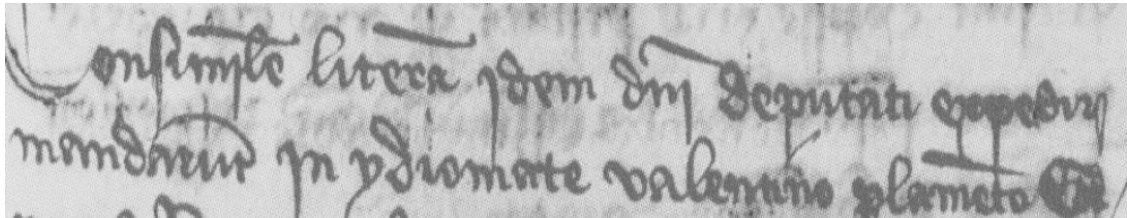 Consimile litera jdem dnj deputati expediri
mandarunt jn ydiomate valentino